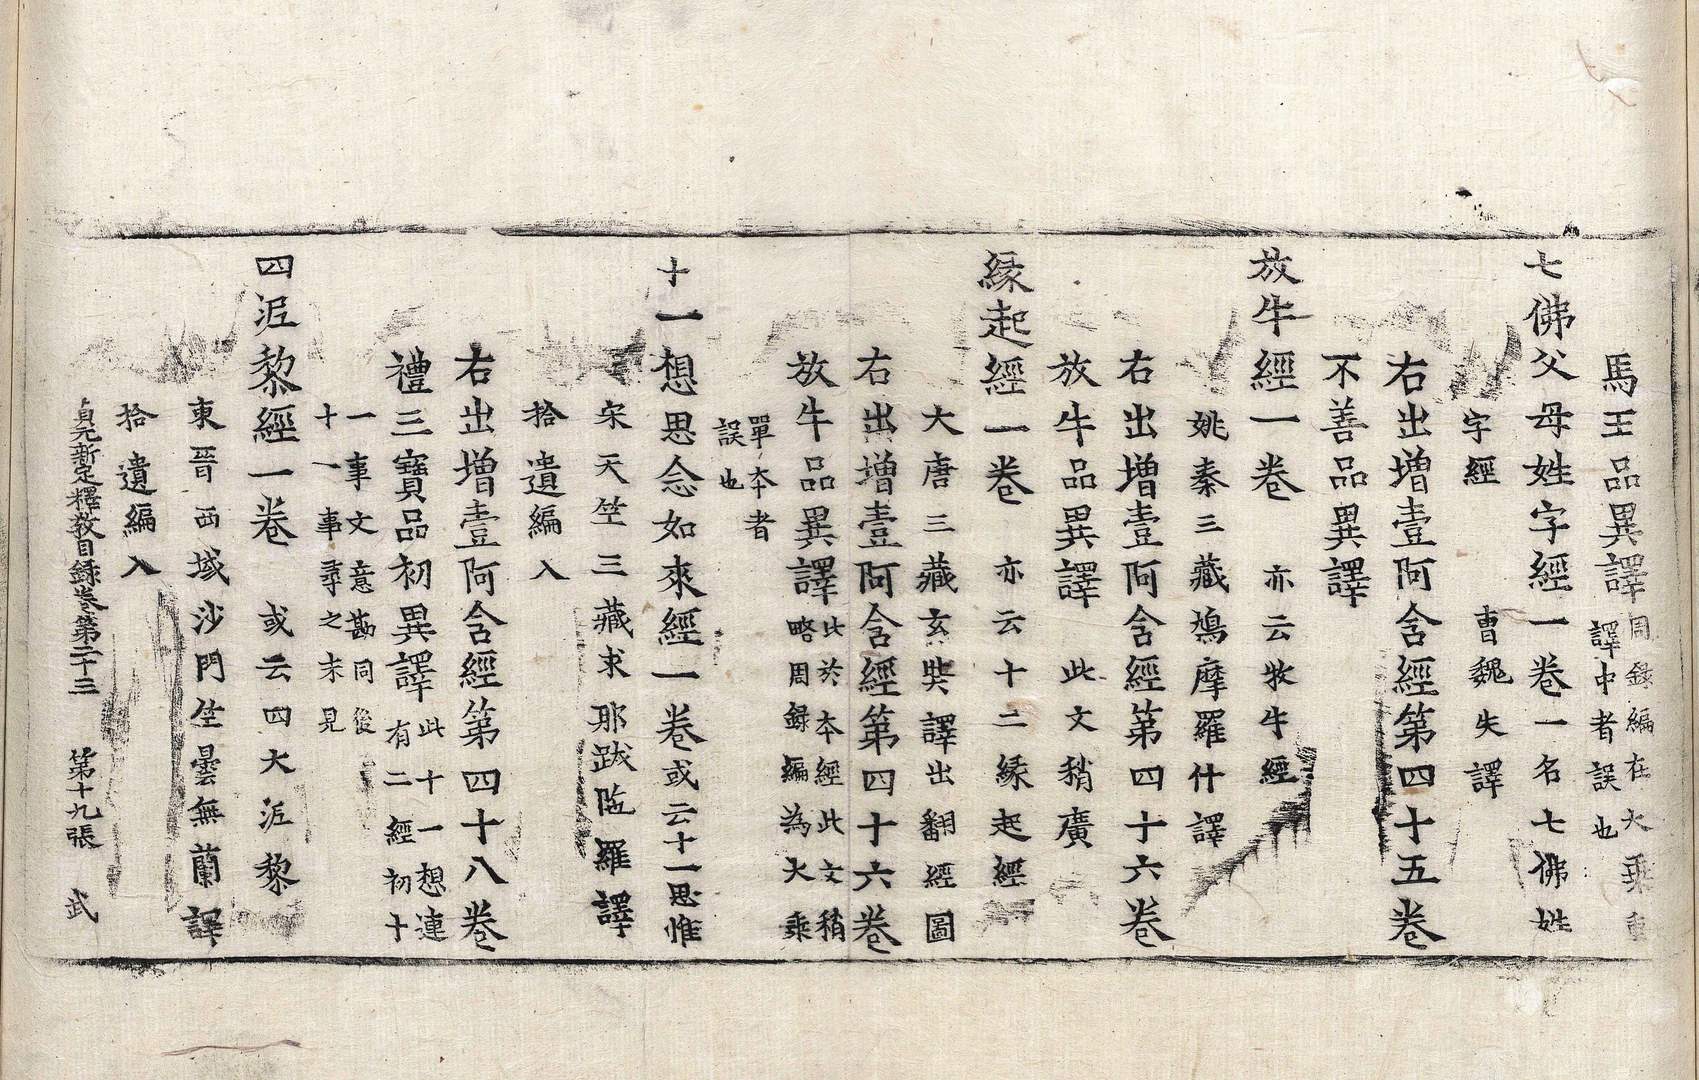 馬王品異譯周録編在大乘重
譯中者誤也
七佛父母姓字經一卷一名七佛姓
字經　曹魏失譯
右出增壹阿含經第四十五卷
不善品異譯
放牛經一卷　亦云牧牛經
姚秦三藏鳩摩羅什譯
右出增壹阿含經第四十六卷
放牛品異譯此文稍廣
緣起經一卷　亦云十二緣起經
大唐三藏玄奘譯出翻經圖
右出增壹阿含經第四十六卷
放牛品異譯此於本經此文稍
略周録編為大乘
單本者
誤也
十一想思念如來經一卷或云十一思惟
宋天竺三藏求那跋陁羅譯
拾遺編入
右出增壹阿含經第四十八卷
禮三寶品初異譯此十一想連
有二經初十
一事文意勘同後
十一事尋之未見
四泥黎經一卷　或云四大泥黎
東晉西域沙門竺曇無蘭譯
拾遺編入
貞元新定釋教目録卷第二十三　第十九張　武